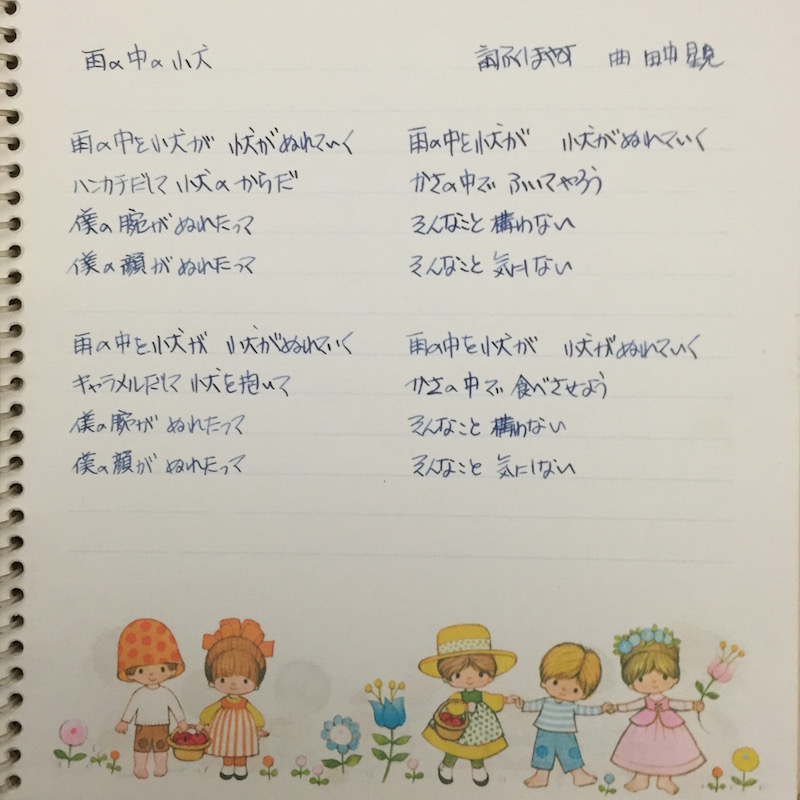 雨の中の小犬
詞 ふくはやお 曲 田中
雨の中を小犬が 小犬がぬれていく
ハンカチだして 小犬のからだ
僕の腕が ぬれたって
僕の顔が ぬれたって
雨の中を小犬が 小犬がぬれていく
かさの中で ふいてやろう
そんなこと 構わない
そんなこと 気にしない
雨の中を小犬が 小犬がぬれていく
キャラメルだして 小犬を抱いて
僕の腕が ぬれたって
僕の顔が ぬれたって
雨の中を小犬が 小犬がぬれていく
かさの中で 食べさせよう
そんなこと 構わない
そんなこと 気にしない